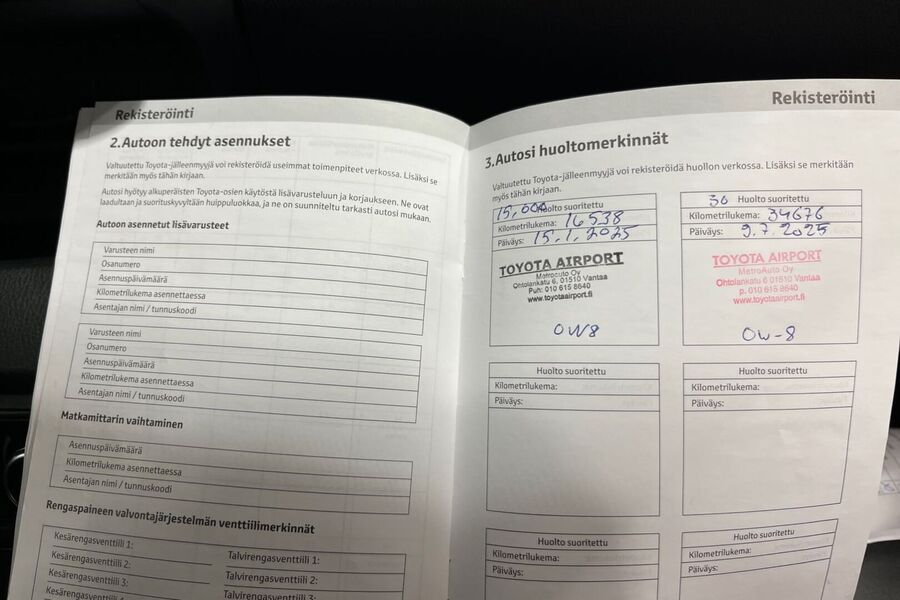 Rekisteröinti
2.Autoon tehdyt asennukset
Valtuutettu Toyota-jälleenmyyjä voi rekisteröidä useimmat toimenpiteet verkossa. Lisäksi se
merkitään myös tähän kirjaan.
Autosi hyötyy alkuperäisten Toyota-osien käytöstä lisävarusteluun ja korjaukseen. Ne ovat
laadultaan ja suorituskyvyltään huippuluokkaa, ja ne on suunniteltu tarkasti autosi mukaan.
Autoon asennetut lisävarusteet
Varusteen nimi
Osanumero
Asennuspäivämäärä
Kilometrilukema asennettaessa
Asentajan nimi / tunnuskoodi
Varusteen nimi
Osanumero
Asennuspäivämäärä
Kilometrilukema asennettaessa
Asentajan nimi / tunnuskoodi
Matkamittarin vaihtaminen
Asennuspäivämäärä
Kilometrilukema asennettaessa
Asentajan nimi / tunnuskoodi
Rengaspaineen valvontajärjestelmän venttiilimerkinnät
Kesärengasventtiili 1:
Kesärengasventtiili 2:
Kesärengasventtiili 3:
Kesärengasventtiili
Talvirengasventtiili 1:
Talvirengasventtiili 2:
Talvirengasventtiili 3:
Rekisteröinti
3.Autosi huoltomerkinnät
Valtuutettu Toyota-jälleenmyyjä voi rekisteröidä huollon verkossa. Lisäksi se merkitään
myös tähän kirjaan.
15,000 Huolto suoritettu
Kilometrilukema: 16538
Päiväys: 15.1.2025
TOYOTA AIRPORT
Metroauto Oy
Ohtolankatu 6, 01510 Vantaa
Puh: 010 615 8640
www.toyotaairport.fi
OW8
30 Huolto suoritettu
Kilometrilukema: 34676
Päiväys: 9.7.2025
TOYOTA AIRPORT
MetroAuto Oy
Ohtolankatu 6 01510 Vantaa
p. 010 615 8640
www.toyotaairport.fi
OW-8
Huolto suoritettu
Kilometrilukema:
Päiväys:
Huolto suoritettu
Kilometrilukema:
Päiväys:
Huolto suoritettu
Kilometrilukema:
Päiväys:
Huolto suoritettu
Kilometrilukema:
Päiväys: